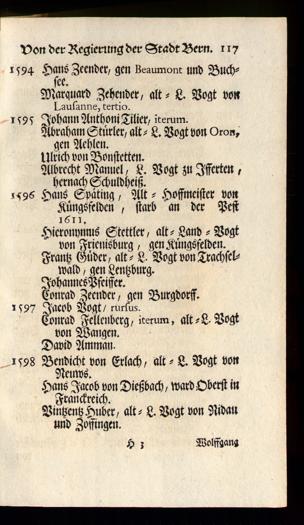 Von der Regierung der Stadt Bern. 117
1594 Hans Zeender, gen Beaumont und Buch-
see.
Marquard Zehender, alt-L. Vogt von
Lausanne, tertio.
1595 Johann Anthoni Tilier, iterum.
Abraham Stürler, alt-L. Vogt von Oron,
gen Aehlen.
Ulrich von Bonstetten.
Albrecht Manuel, L. Vogt zu Ifferten,
hernach Schuldheiß.
1596 Hans Späting, Alt-Hoffmeister von
Küngsfelden, starb an der Pest
1611.
Hieronymus Stettler, alt-Land-Vogt
von Frienisburg, gen Küngsfelden.
Frantz Güder, alt-L. Vogt von Trachsel-
wald, gen Lentzburg.
Johannes Pfeiffer.
Conrad Zeender, gen Burgdorff.
1597 Jacob Vogt, rursus.
Conrad Fellenberg, iterum, alt-L. Vogt
von Wangen.
David Amman.
1598 Bendicht von Erlach, alt-L. Vogt von
Neuws.
Hans Jacob von Dießbach, ward Oberst in
Franckreich.
Vintzentz Huber, alt-L. Vogt von Nidau
und Zoffingen.
H 3 Wolffgang